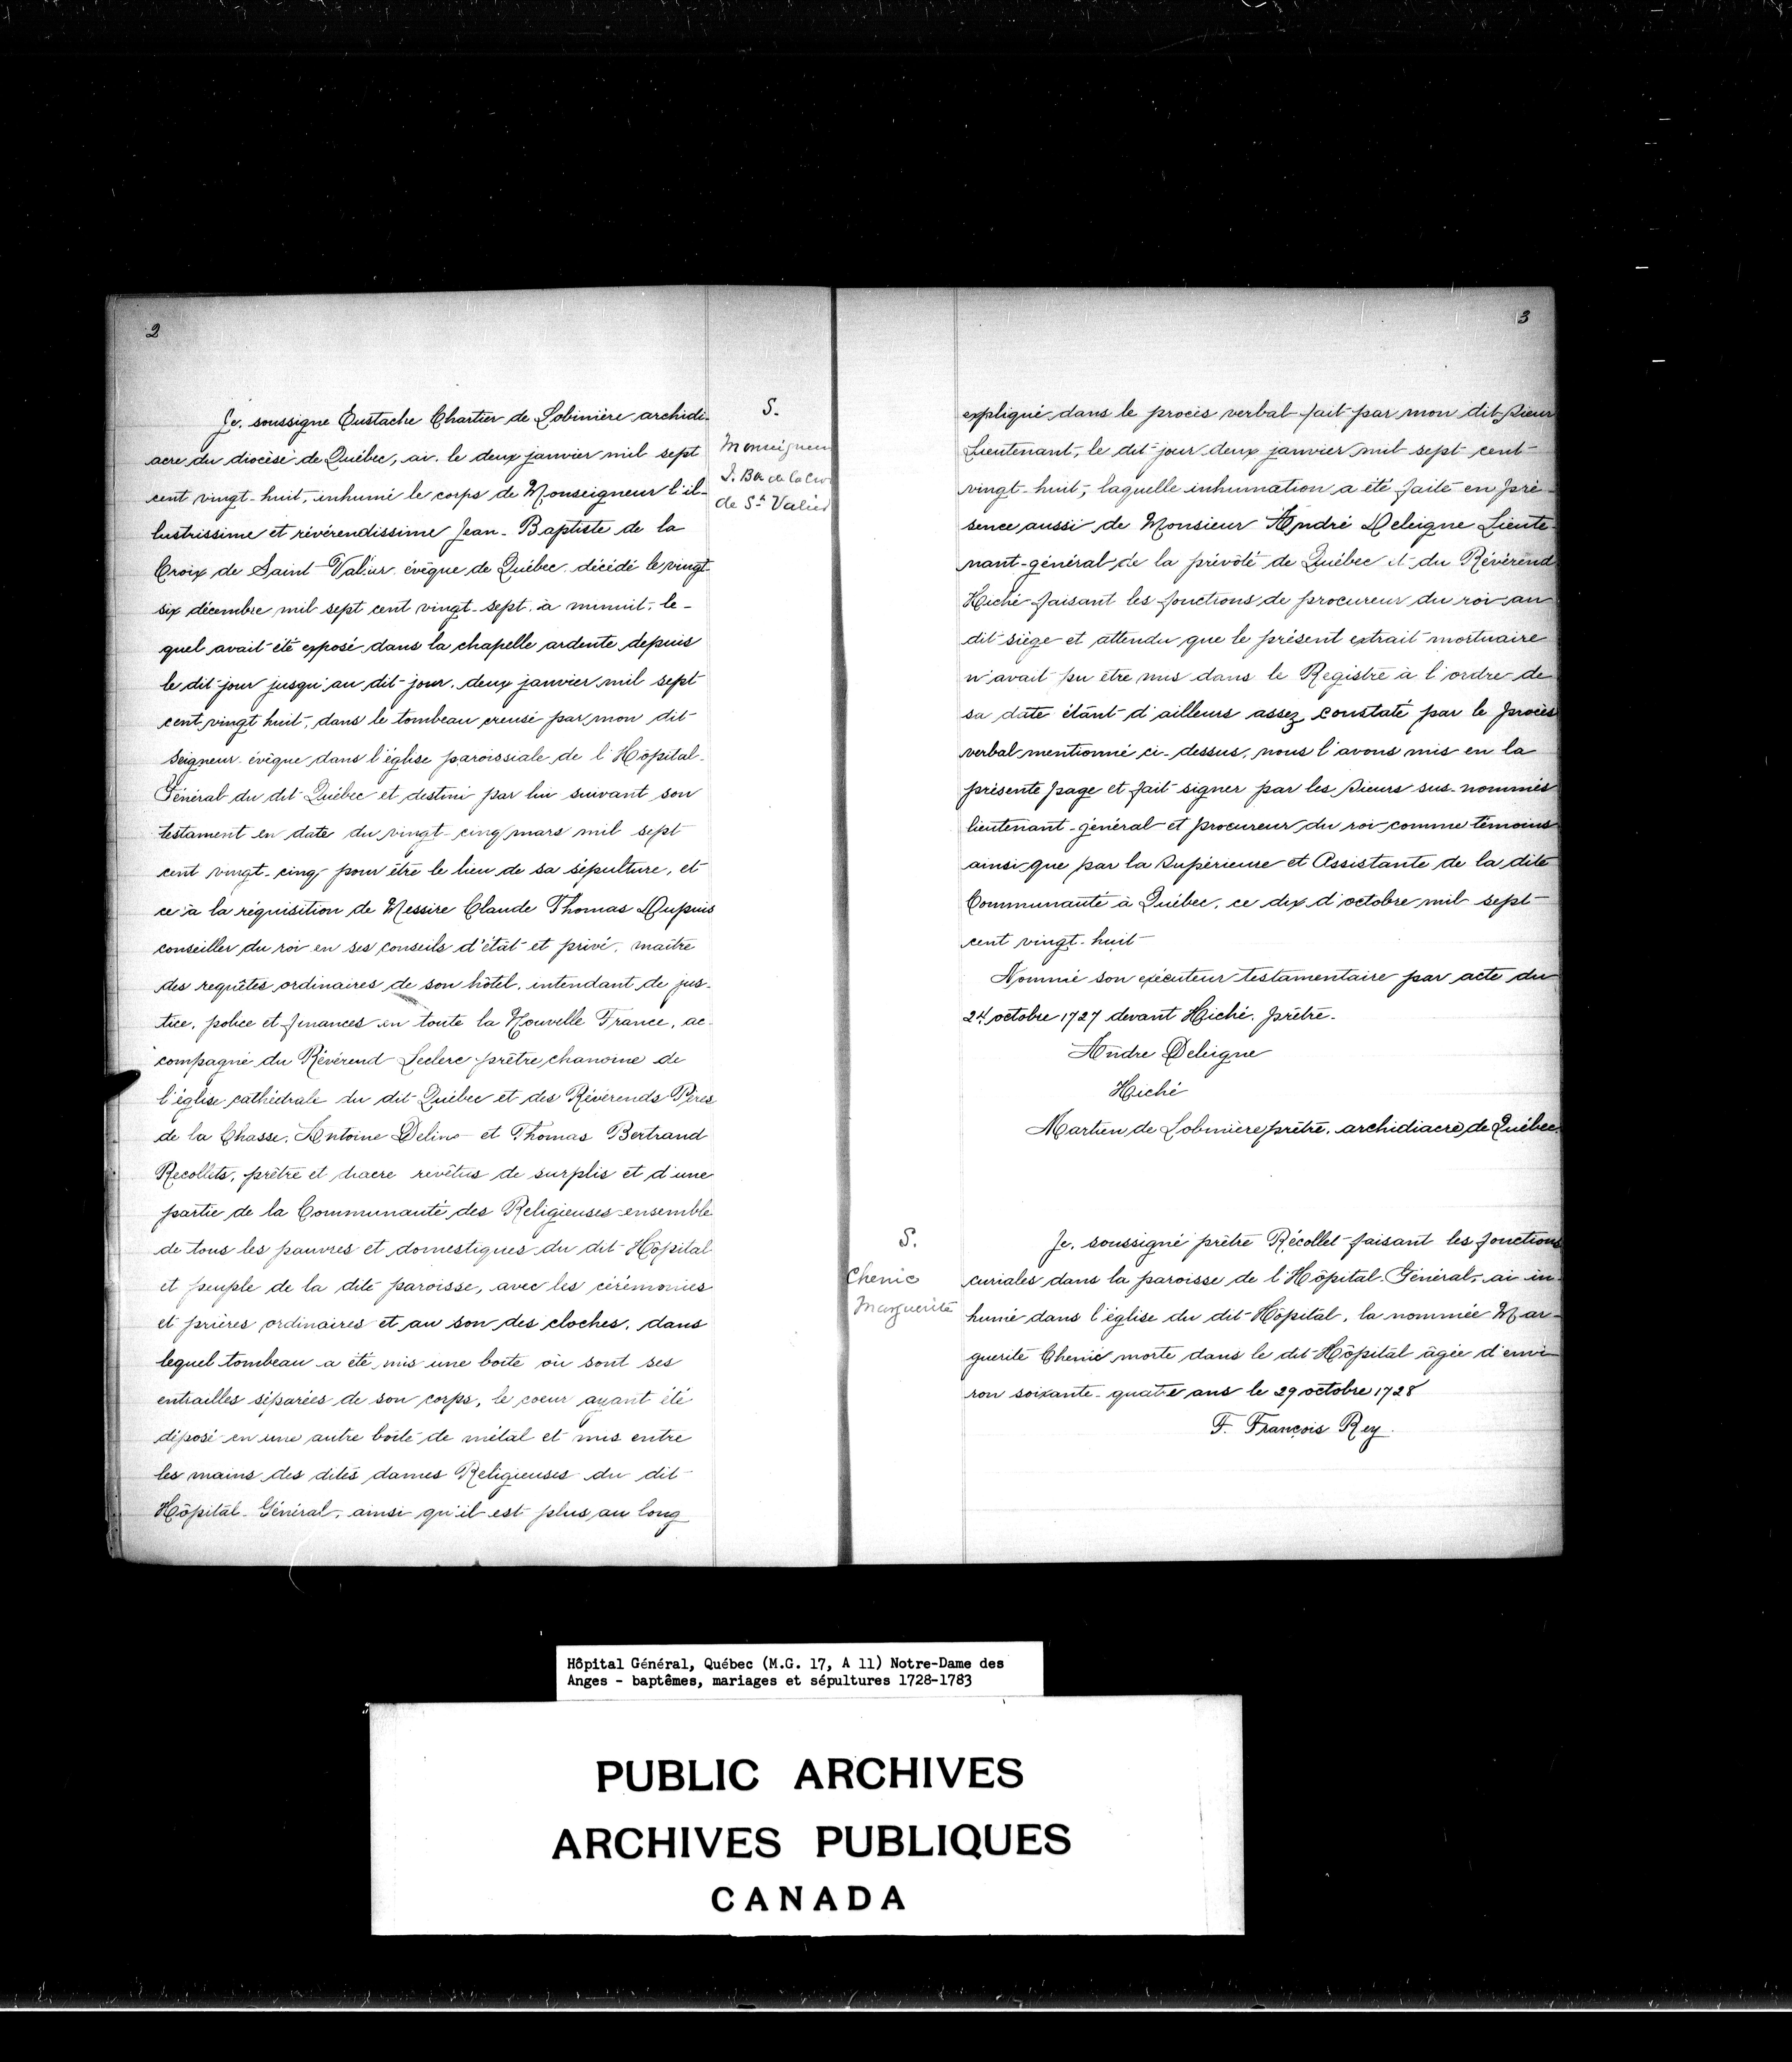 2
Je, soussigné Eustache Chartier de Lobinière archidi-
acre du diocèse de Québec, ai, le deux janvier mil sept
cent vingt-huit, inhumé le corps de Monseigneur l'il-
lustrissime et révérendissime Jean-Baptiste de la
Croix de Saint Valier évêque de Québec décédé le vingt-
six décembre mil sept cent vingt-sept, à minuit, le-
quel avait été exposé dans la chapelle ardente depuis
le dit jour jusqu'au dit jour, deux janvier mil sept
cent vingt huit, dans le tombeau creusé par mon dit
Seigneur évêque dans l'église paroissiale de l'Hôpital-
Général du dit Québec et destiné par lui suivant son
testament en date du vingt-cinq mars mil sept
cent vingt-cinq, pour être le lieu de sa sépulture, et
ce à la réquisition de Messire Claude Thomas Dupuis
conseiller du roi en ses conseils d'état et privé, maître
des requêtes ordinaires de son hôtel, intendant de jus-
tice, police et finances en toute la Nouvelle France, ac-
compagné du Révérend Leclerc prêtre chanoine de
l'église cathédrale du dit Québec et des Révérends Pères
de la Chasse, Antoine Delino et Thomas Bertrand
Recollets, prêtre et diacre revêtus de surplis et d'une
partie de la Communauté des Religieuses ensemble
de tous les pauvres et domestiques du dit Hôpital
et peuple de la dite paroisse, avec les cérémonies
et prières ordinaires et au son des cloches, dans
lequel tombeau a été mis une boîte où sont ses
entrailles séparées de son corps, le coeur ayant été
déposé en une autre boîte de métal et mis entre
les mains des dites dames Religieuses du dit
Hôpital-Général, ainsi qu'il est plus au long
S.
Monseigneur
J. Bte de la Croix
de St Valier
3
expliqué dans le procès verbal fait par mon dit Sieur
Lieutenant, le dit jour deux janvier mil sept cent
vingt-huit, laquelle inhumation a été faite en pré-
sence aussi de Monsieur André Deleigne Lieute-
nant-général de la prévôté de Québec et du Révérend
Hiché faisant les fonctions de procureur du roi au
dit siège et attendu que le présent extrait mortuaire
n'avait pu être mis dans le Registre à l'ordre de
sa date étant d'ailleurs assez constaté par le procès
verbal mentionné ci-dessus, nous l'avons mis en la
présente page et fait signer par les Sieurs sus-nommés
lieutenant-général et procureur du roi comme témoins
ainsi que par la Supérieure et Assistante de la dite
Communauté à Québec, ce dix d'octobre mil sept
cent vingt-huit
Nommé son exécuteur testamentaire par acte du
24 octobre 1727 devant Hiché, prêtre.
Andre Deleigne
Hiché
Martien de Lobinière prêtre, archidiacre de Québec.
S.
Chenic
Marguerite
Je, soussigné prêtre Récollet faisant les fonctions
curiales dans la paroisse de l'Hôpital-Général, ai in-
humé dans l'église du dit Hôpital, la nommée Mar-
guerite Chenic morte dans le dit Hôpital âgée d'envi-
ron soixante-quatre ans le 29 octobre 1728
F. François Rey.
Hôpital Général, Québec (M.G. 17, A 11) Notre-Dame des
Anges - baptêmes, mariages et sépultures 1728-1783
PUBLIC ARCHIVES
ARCHIVES PUBLIQUES
CANADA